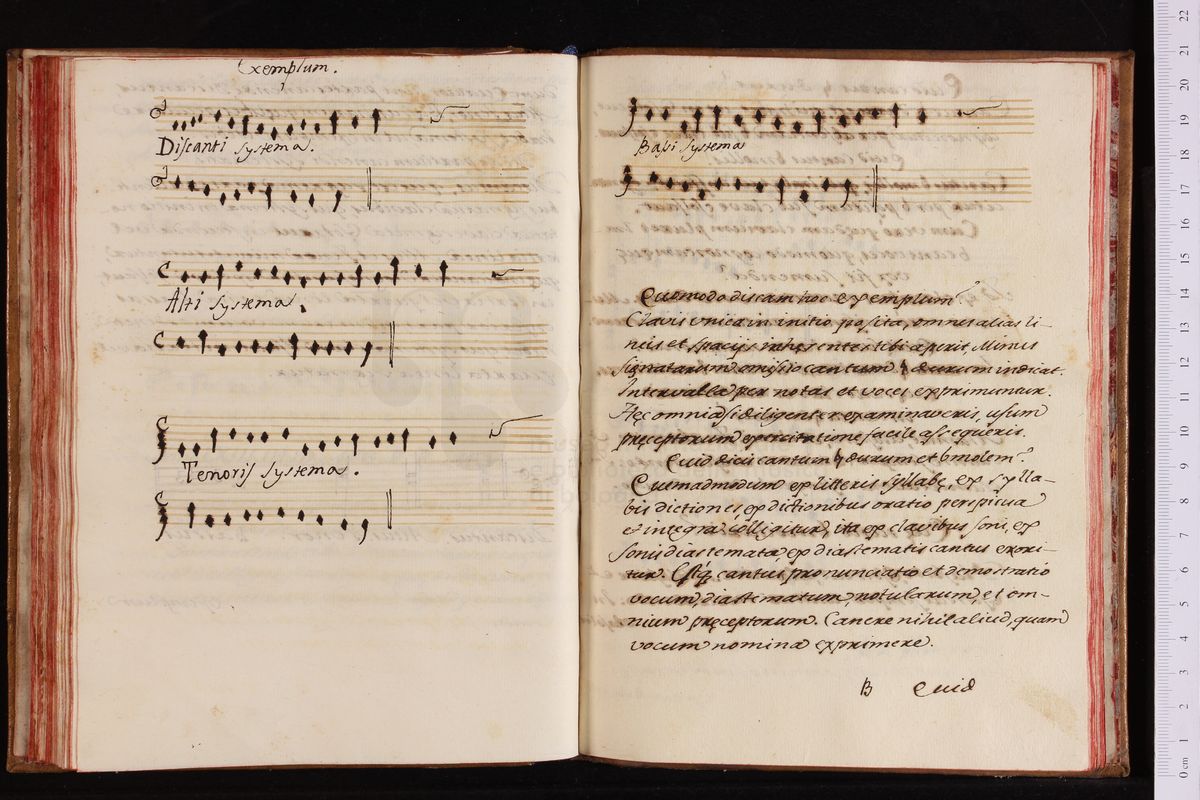 Exemplum.
Discanti systema.
Alti systema.
Tenoris systema.
Basi systema
Quomodo discam hoc exemplum?
Clavis unica in initio posita, omnes alias li-
neis et spacijs inhęrentes tibi aperit. Minus
signatarum omissio cantum ♮ durum indicat.
Intervalla per notas et voces exprimuntur.
Hęc omnia si diligenter examinaveris, usum
pręceptorum exercitatione facile assequeris.
Quid dicis cantum ♮ durum et b molem?
Quemadmodum ex litteris syllabę, ex sylla-
bis dictiones ex dictionibus oratio perspicua
et integra colligitur, ita ex clavibus soni, ex
sonis diastemata, ex diastematis cantus exori-
tur. Estq́ cantus, pronunciatio et demostratio
vocum, diastematum, notularum, et om-
nium pręceptorum. Canere nihil aliud, quam
vocum nomina exprimere.
B Quid
0 cm 1 2 3 4 5 6 7 8 9 10 11 12 13 14 15 16 17 18 19 20 21 22